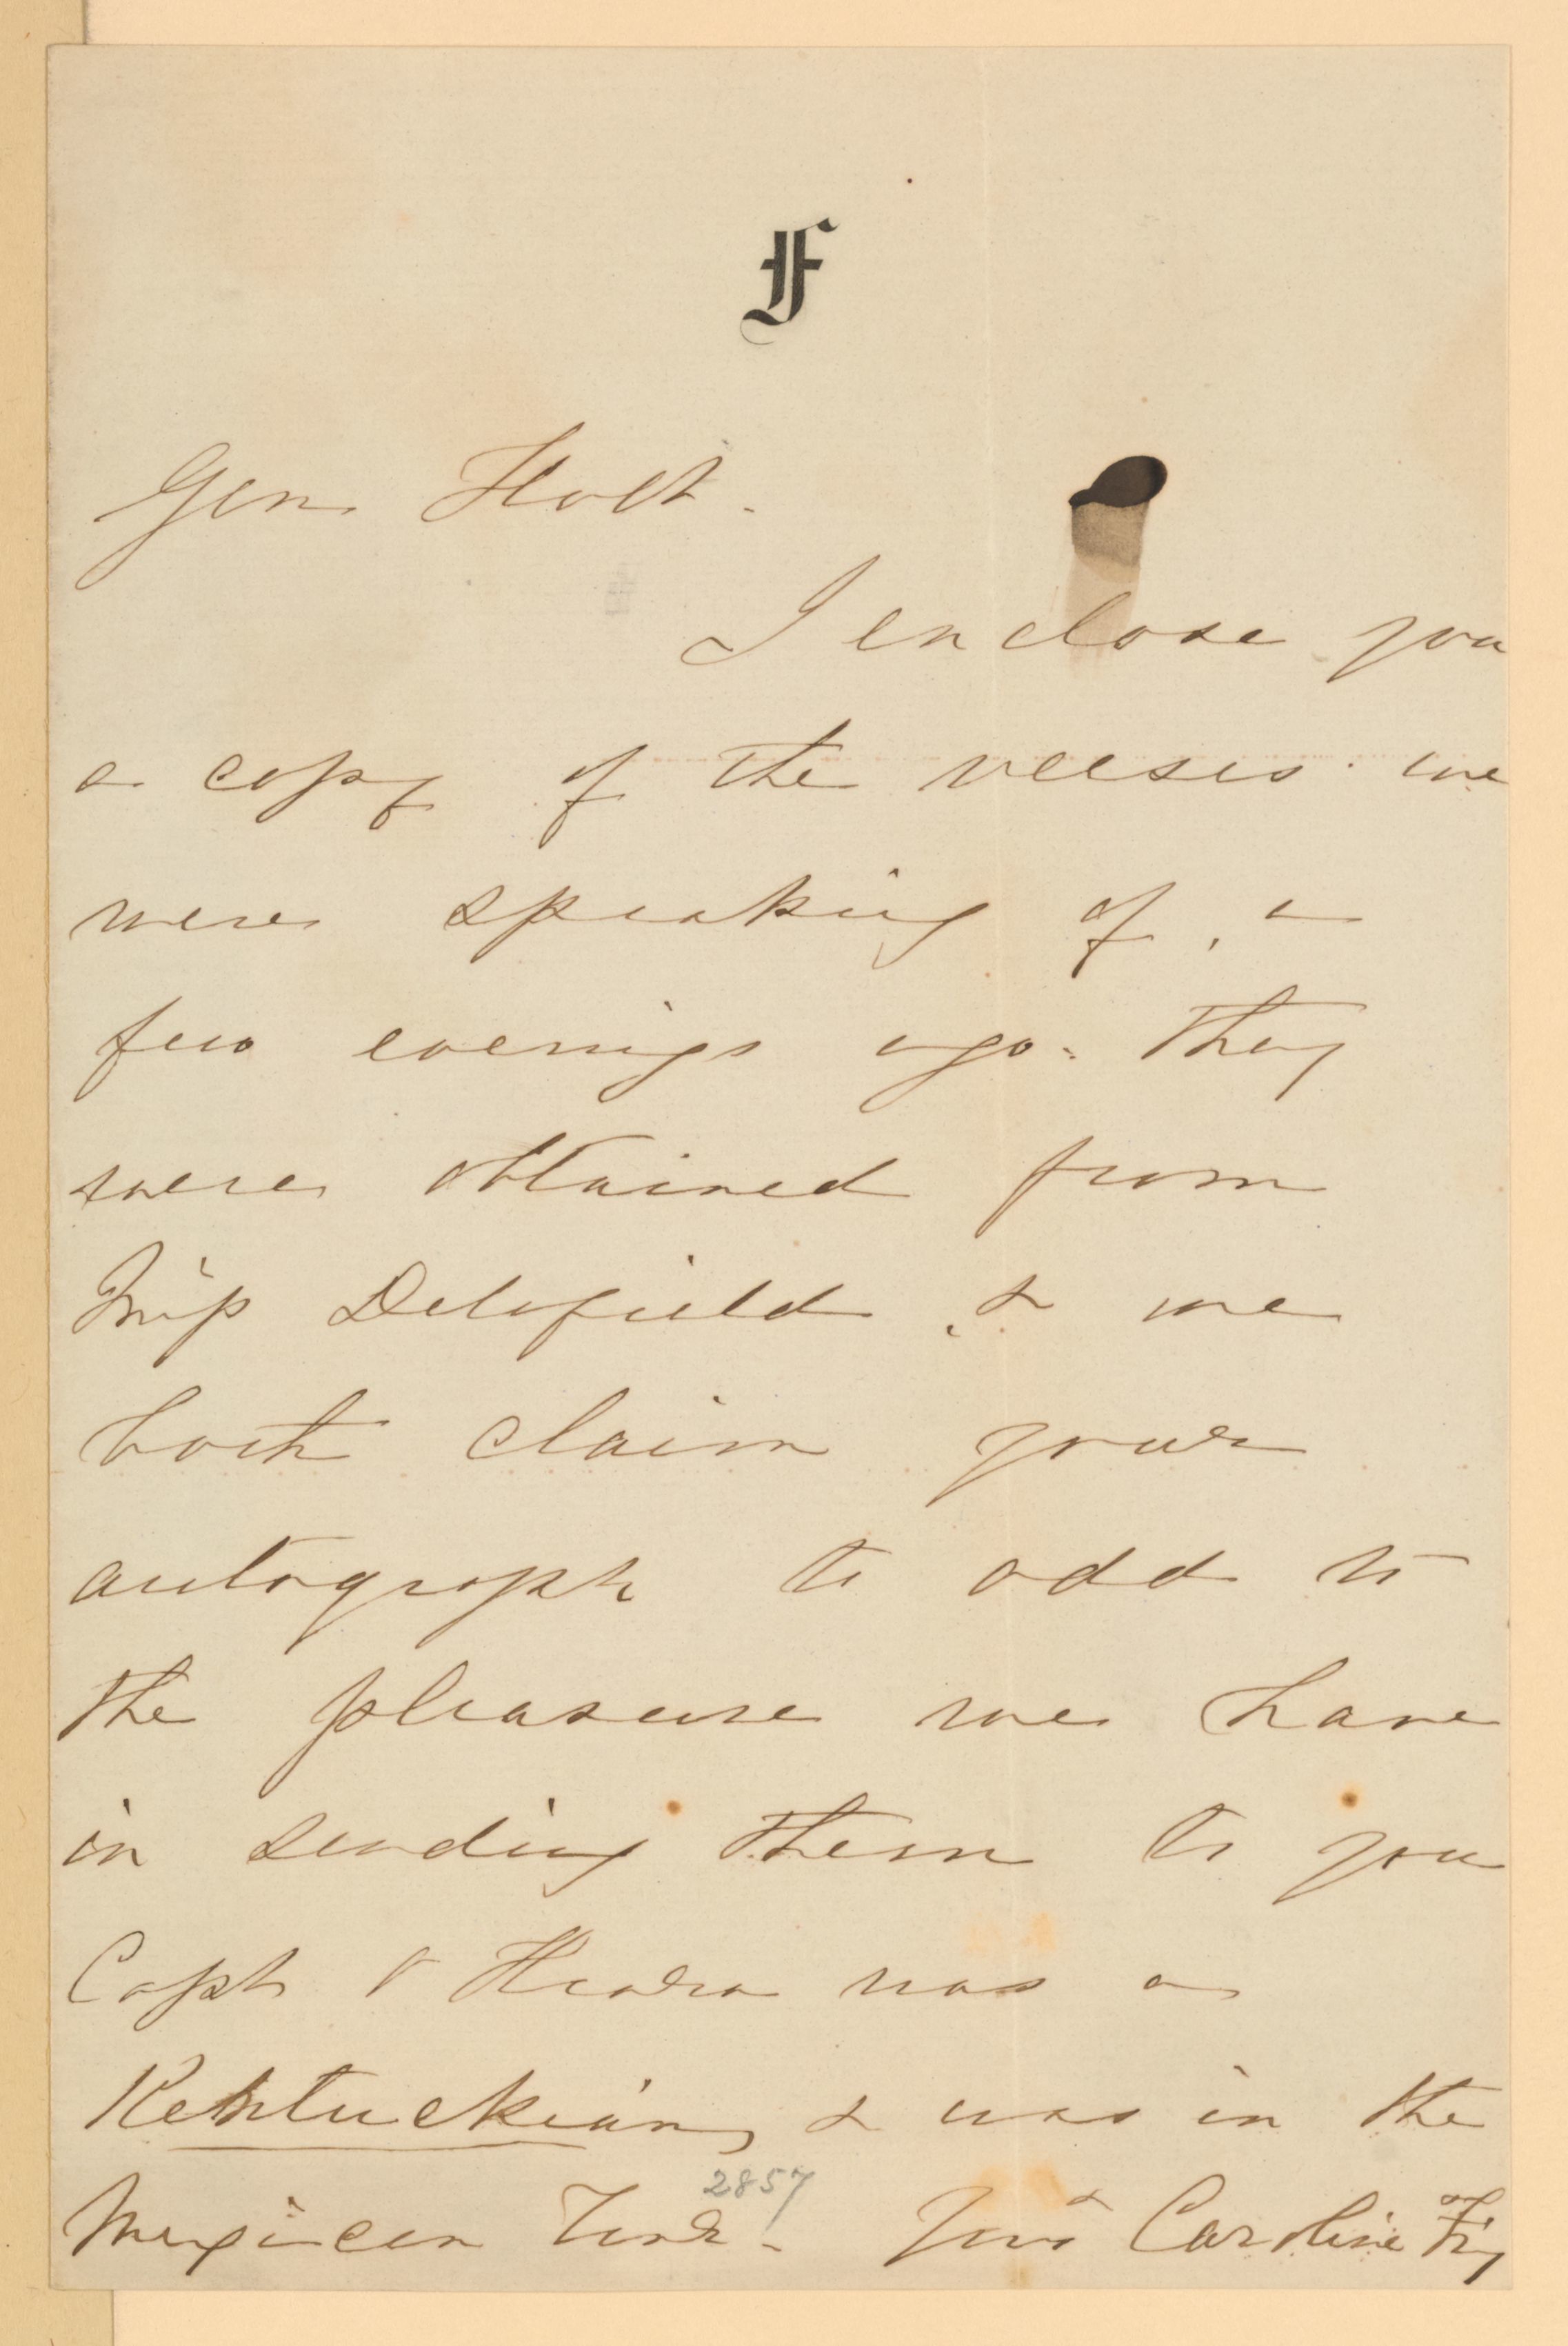 F
Gen. Holt.
I enclose you
a copy of the verses we
were speaking of, a
few evenings ago. They
were obtained from
Miss Delafield & we
both claim your
autograph to add to
the pleasure we have
in sending them to you
Capt O'Hara was a
Kentuckian, & was in the
Mexican War.
2857
Caroline